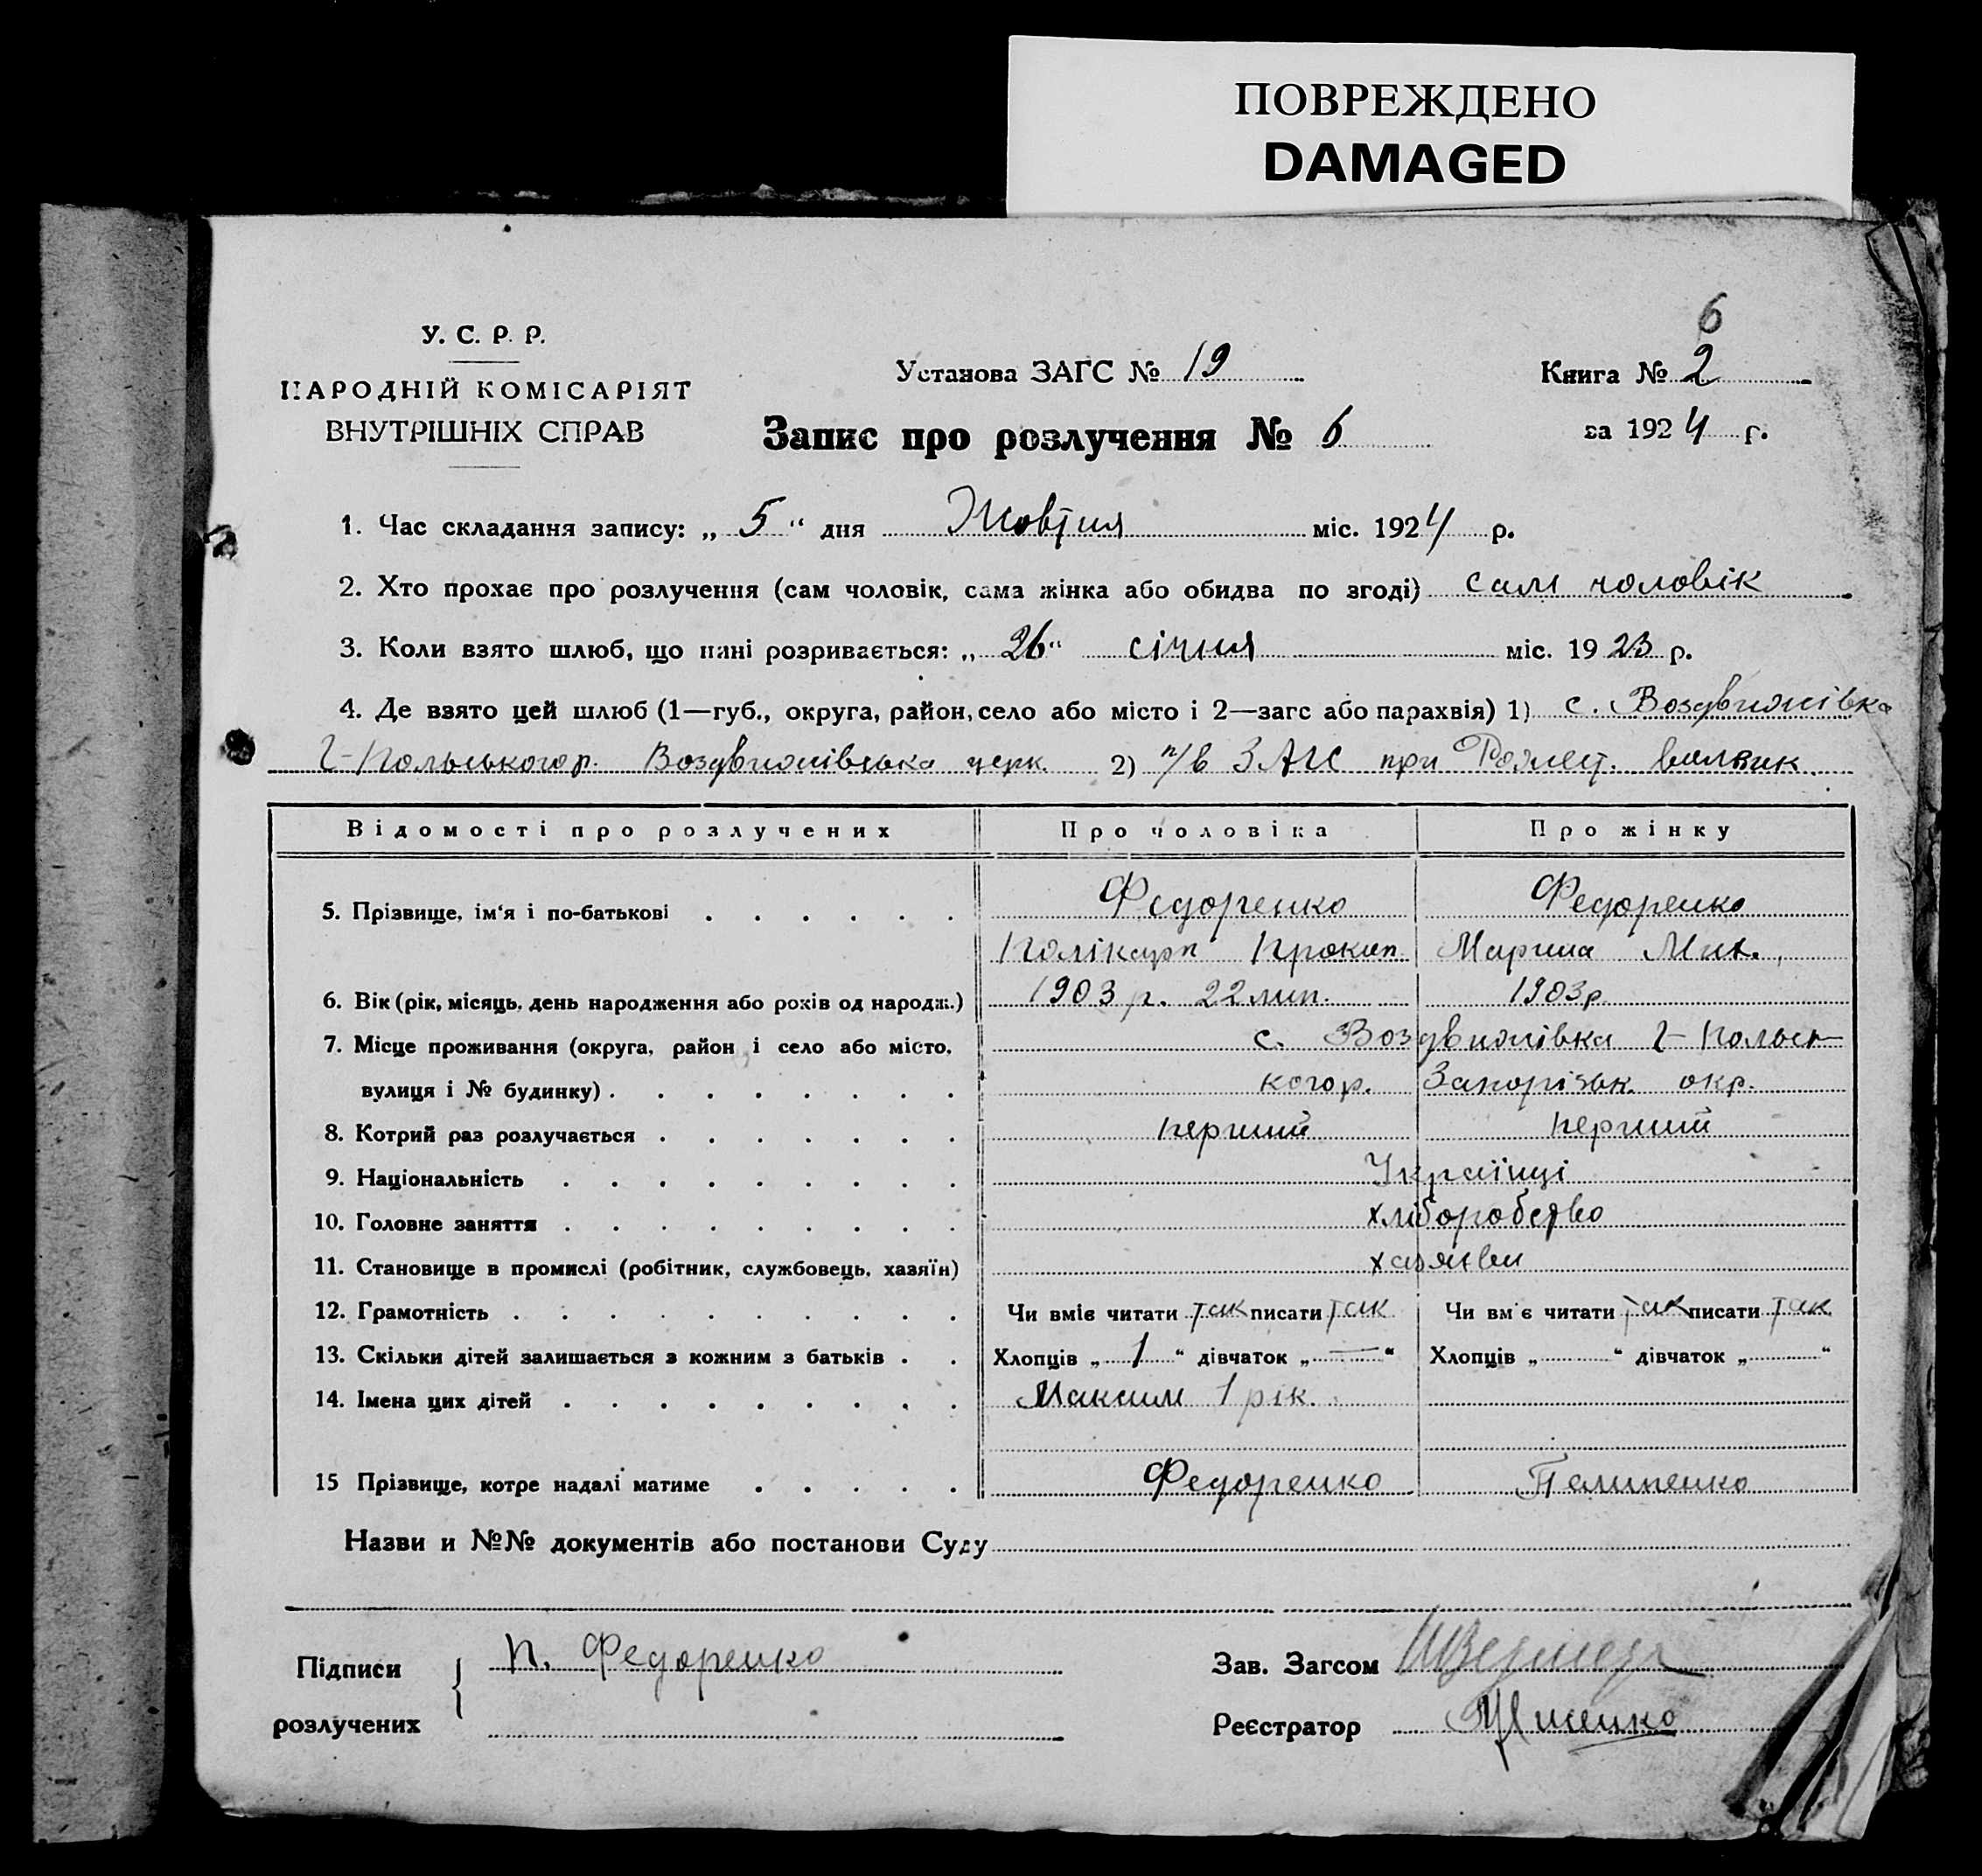 ПОВРЕЖДЕНО
DAMAGED
6
У. С. Р. Р.
НАРОДНІЙ КОМІСАРІЯТ
ВНУТРІШНІХ СПРАВ
Установа ЗАГС № 19
Книга № 2
Запис про розлучення № 6
за 1924 г.
1. Час складання запису: „ 5 “ дня Жовтня міс. 1924 р.
2. Хто прохає про розлучення (сам чоловік, сама жінка або обидва по згоді) сам чоловік
3. Коли взято шлюб, що нині розривається: „ 26 “ січня міс. 1923 р.
4. Де взято цей шлюб (1—губ., округа, район, село або місто і 2—загс або парахвія) 1) с. Воздвижівка
Г-Польського р. Воздвижівська церк. 2) п/в ЗАГС при
Відомості про розлучених Про чоловіка Про жінку
5. Прізвище, ім'я і по-батькові Федоренко Федоренко
Полікарп Прокип. Марина Мик.
6. Вік (рік, місяць, день народження або років од народж.) 1903 р. 22 лип. 1903 р.
7. Місце проживання (округа, район і село або місто, с. Воздвижівка Г-Польсь-
вулиця і № будинку) кого р. Запорізьк. окр.
8. Котрий раз розлучається перший перший
9. Національність Українці
10. Головне заняття хліборобство
11. Становище в промислі (робітник, службовець, хазяїн)
12. Грамотність Чи вміє читати так писати так Чи вміє читати так писати так
13. Скільки дітей залишається з кожним з батьків Хлопців „ 1 “ дівчаток „ — “ Хлопців „ “ дівчаток „ “
14. Імена цих дітей Максим 1 рік.
15 Прізвище, котре надалі матиме Федоренко Пилипенко
Назви и №№ документів або постанови Суду
Підписи П. Федоренко Зав. Загсом
розлучених Реєстратор